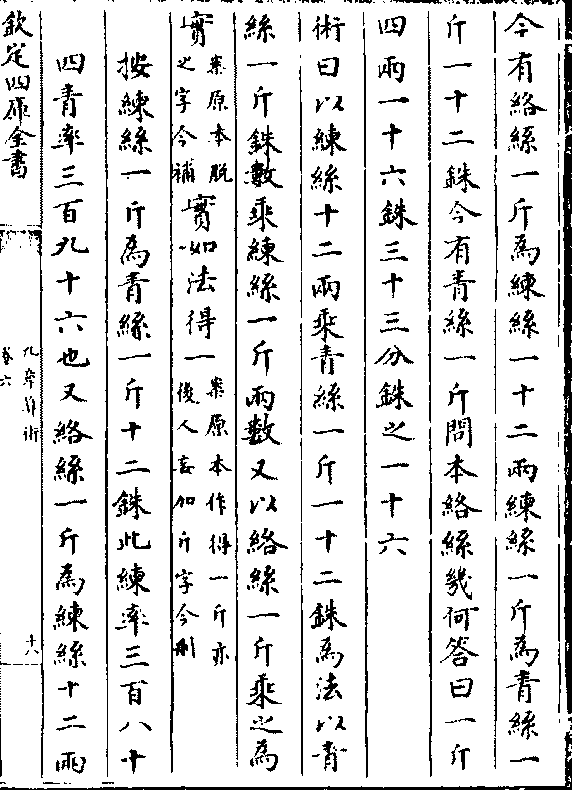 今有絡絲一斤為練絲一十二兩練絲一斤為青絲一
斤一十二銖今有青絲一斤問本絡絲幾何答曰一斤
四兩一十六銖三十三分銖之一十六
術曰以練絲十二兩乘青絲一斤一十二銖為法以青
絲一斤銖數乘練絲一斤兩數又以絡絲一斤乘之為
實案原本脫之字今補實如法得一案原本作得一斤亦後人妄加斤字今刪
按練絲一斤為青絲一斤十二銖此練率三百八十
四青率三百九十六也又絡絲一斤為練絲十二兩
欽定四庫全書
九章算術
卷六
十八